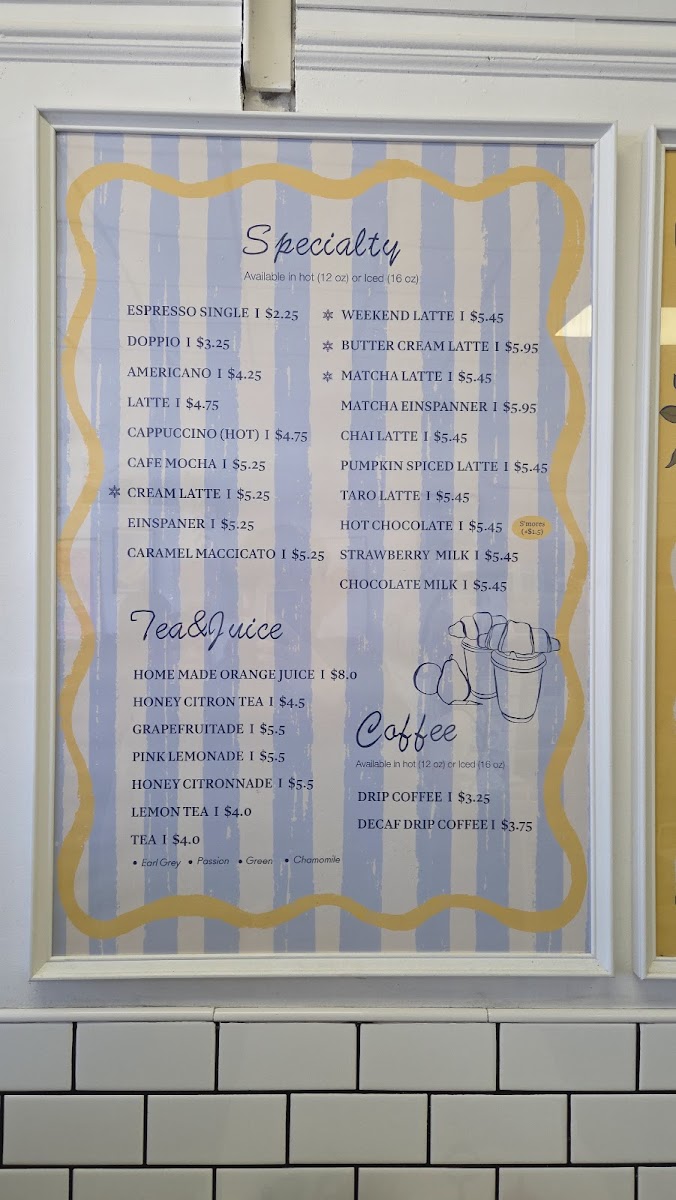 Specialty
Available in hot (12 oz) or Iced (16 oz)
ESPRESSO SINGLE I $2.25
DOPPIO I $3.25
AMERICANO I $4.25
LATTE I $4.75
CAPPUCCINO (HOT) I $4.75
CAFE MOCHA I $5.25
CREAM LATTE I $5.25
EINSPANER I $5.25
CARAMEL MACCICATO I $5.25
WEEKEND LATTE I $5.45
BUTTER CREAM LATTE I $5.95
MATCHA LATTE I $5.45
MATCHA EINSPANNER I $5.95
CHAI LATTE I $5.45
PUMPKIN SPICED LATTE I $5.45
TARO LATTE I $5.45
HOT CHOCOLATE I $5.45
S'mores
(+$1.5)
STRAWBERRY MILK I $5.45
CHOCOLATE MILK I $5.45
Tea&Juice
HOME MADE ORANGE JUICE I $8.0
HONEY CITRON TEA I $4.5
GRAPEFRUITADE I $5.5
PINK LEMONADE I $5.5
HONEY CITRONNADE I $5.5
LEMON TEA I $4.0
TEA I $4.0
• Earl Grey • Passion • Green • Chamomile
Coffee
Available in hot (12 oz) or Iced (16 oz)
DRIP COFFEE I $3.25
DECAF DRIP COFFEE I $3.75